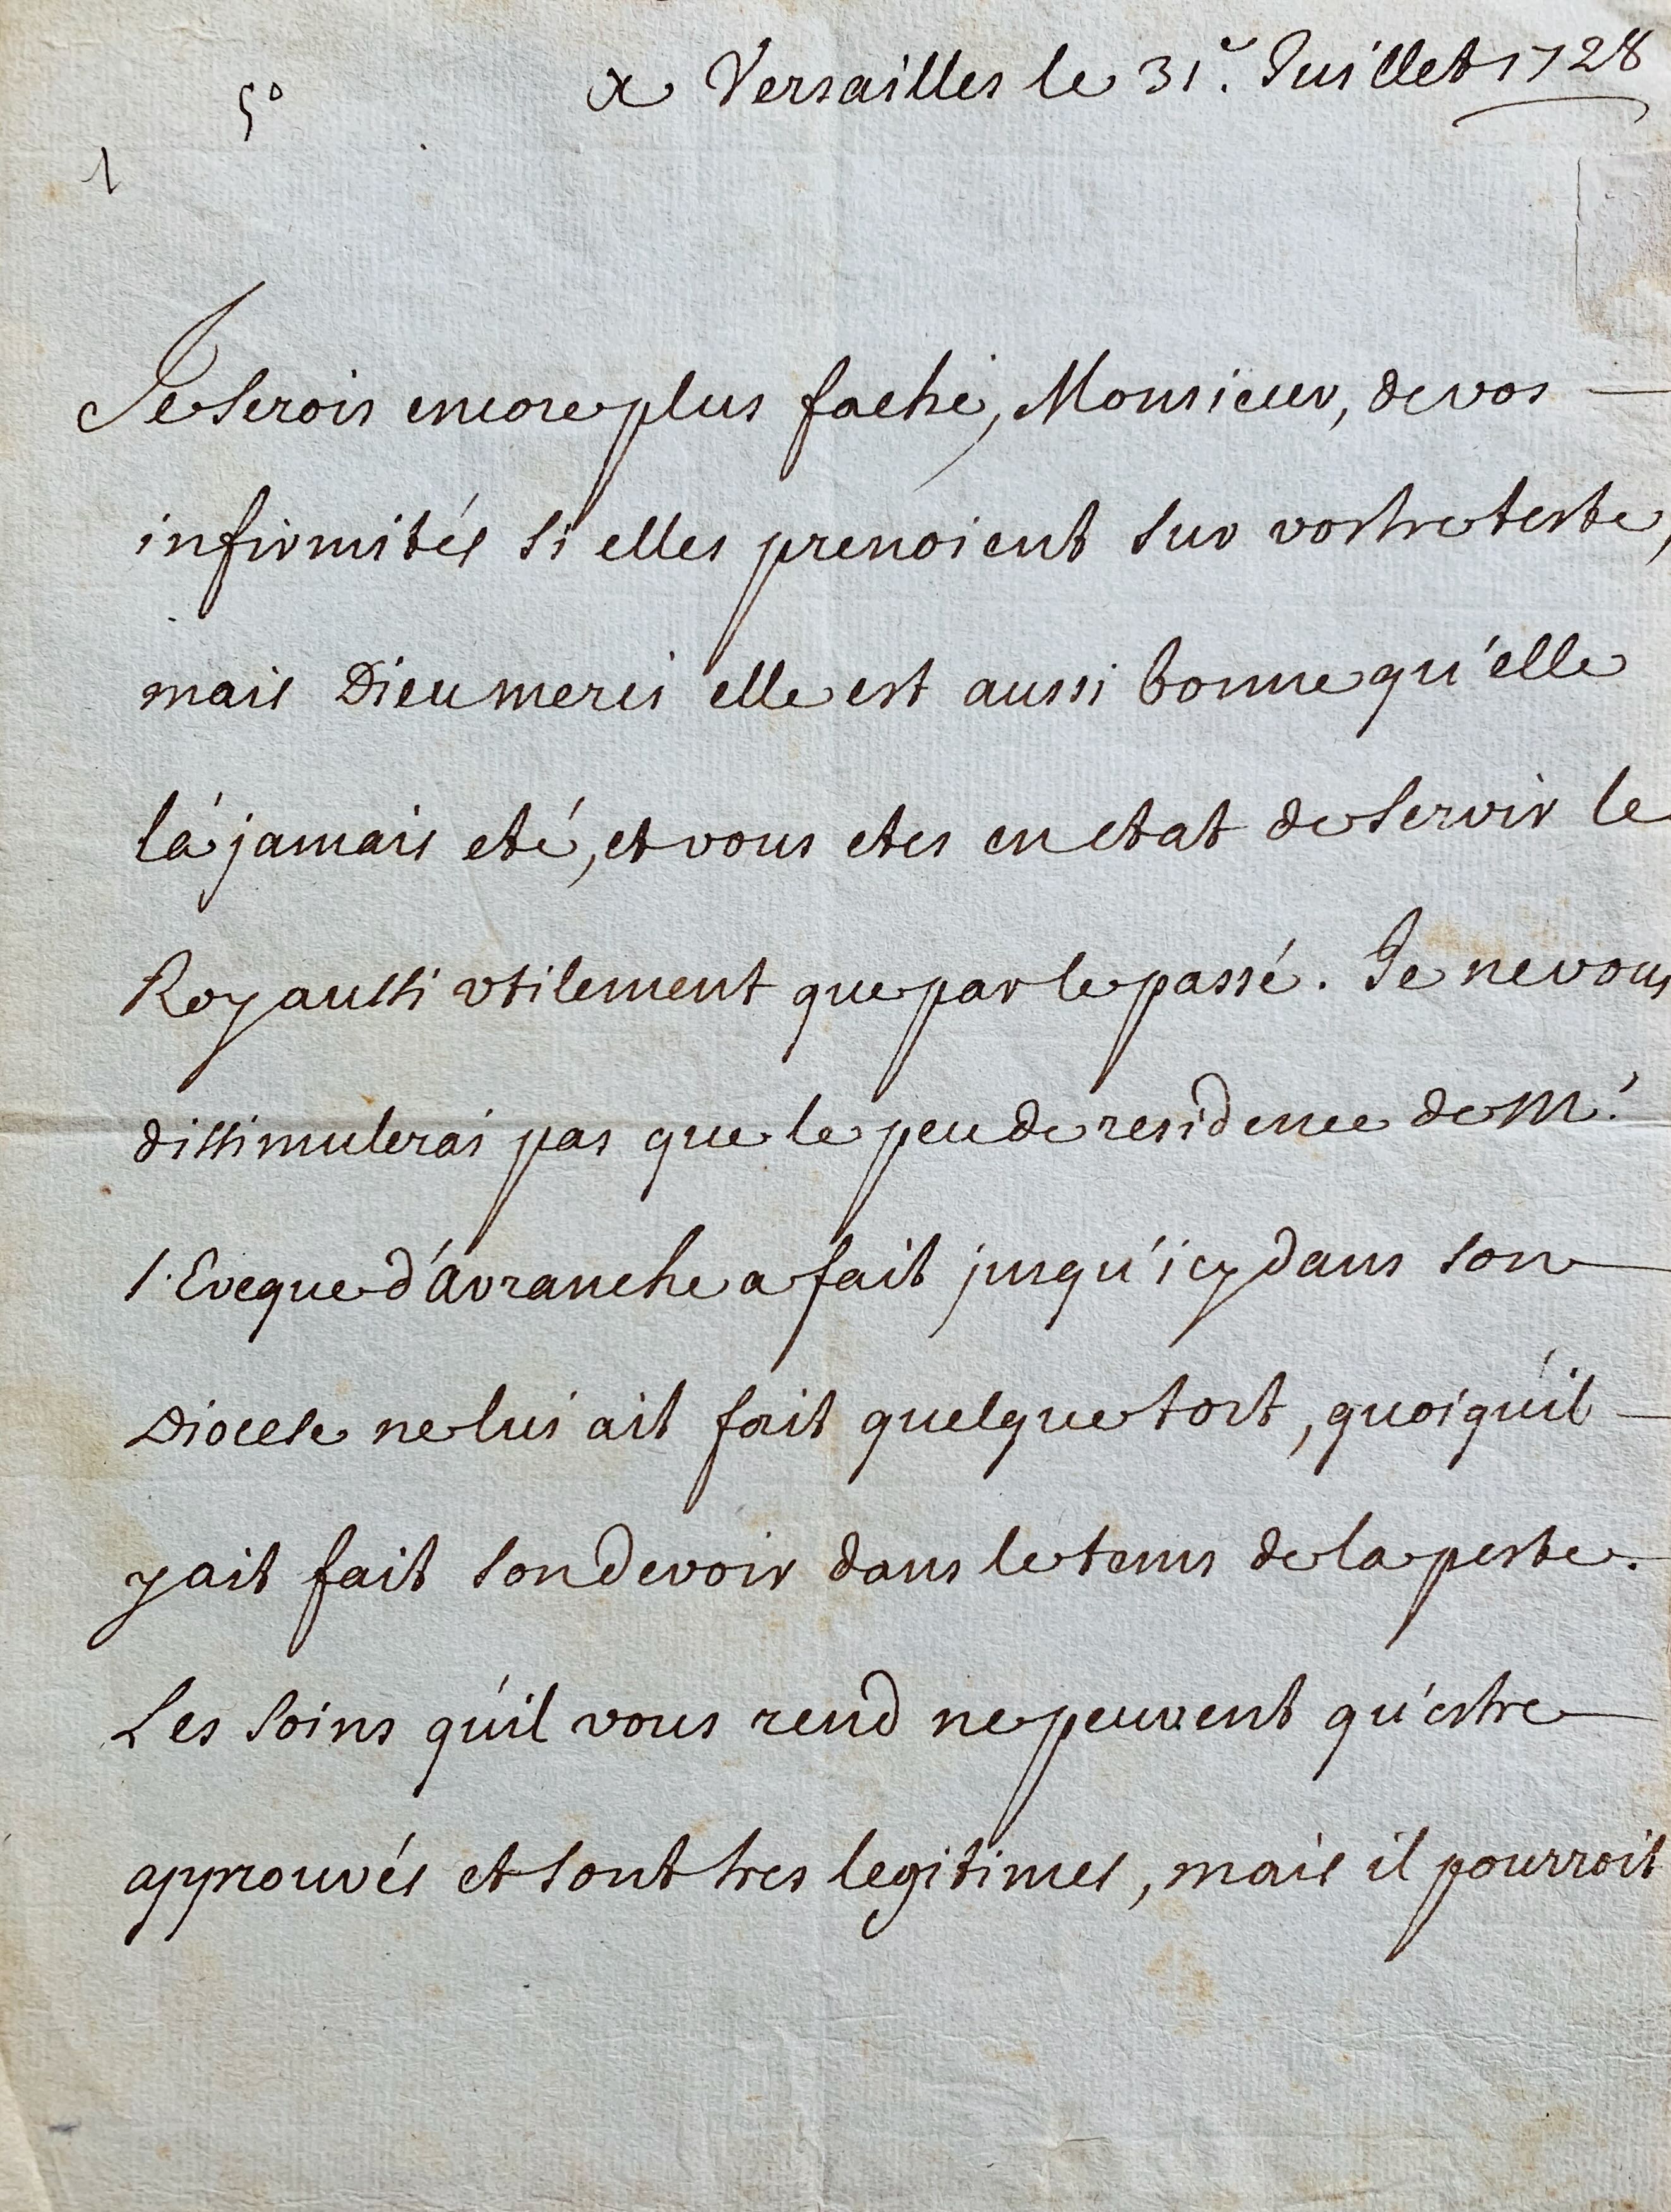 a Versailles le 31.e Juillet 1728
5o
1
Je serois encore plus faché, Monsieur, de vos
infirmités si elles prenoient sur vostre teste,
mais Dieu merci elle est aussi bonne qu'elle
l'a jamais eté, et vous etes en etat de servir le
Roy aussi vtilement que par le passé. Je ne vous
dissimulerai pas que le peu de residence de Mr.
l'Eveque d'avranche a fait jusqu'icy dans son
Diocese ne lui ait fait quelque tort, quoiqu'il
y ait fait son devoir dans le tems de la peste.
Les soins qu'il vous rend ne peuvent qu'estre
approuvés et sont tres legitimes, mais il pourroit